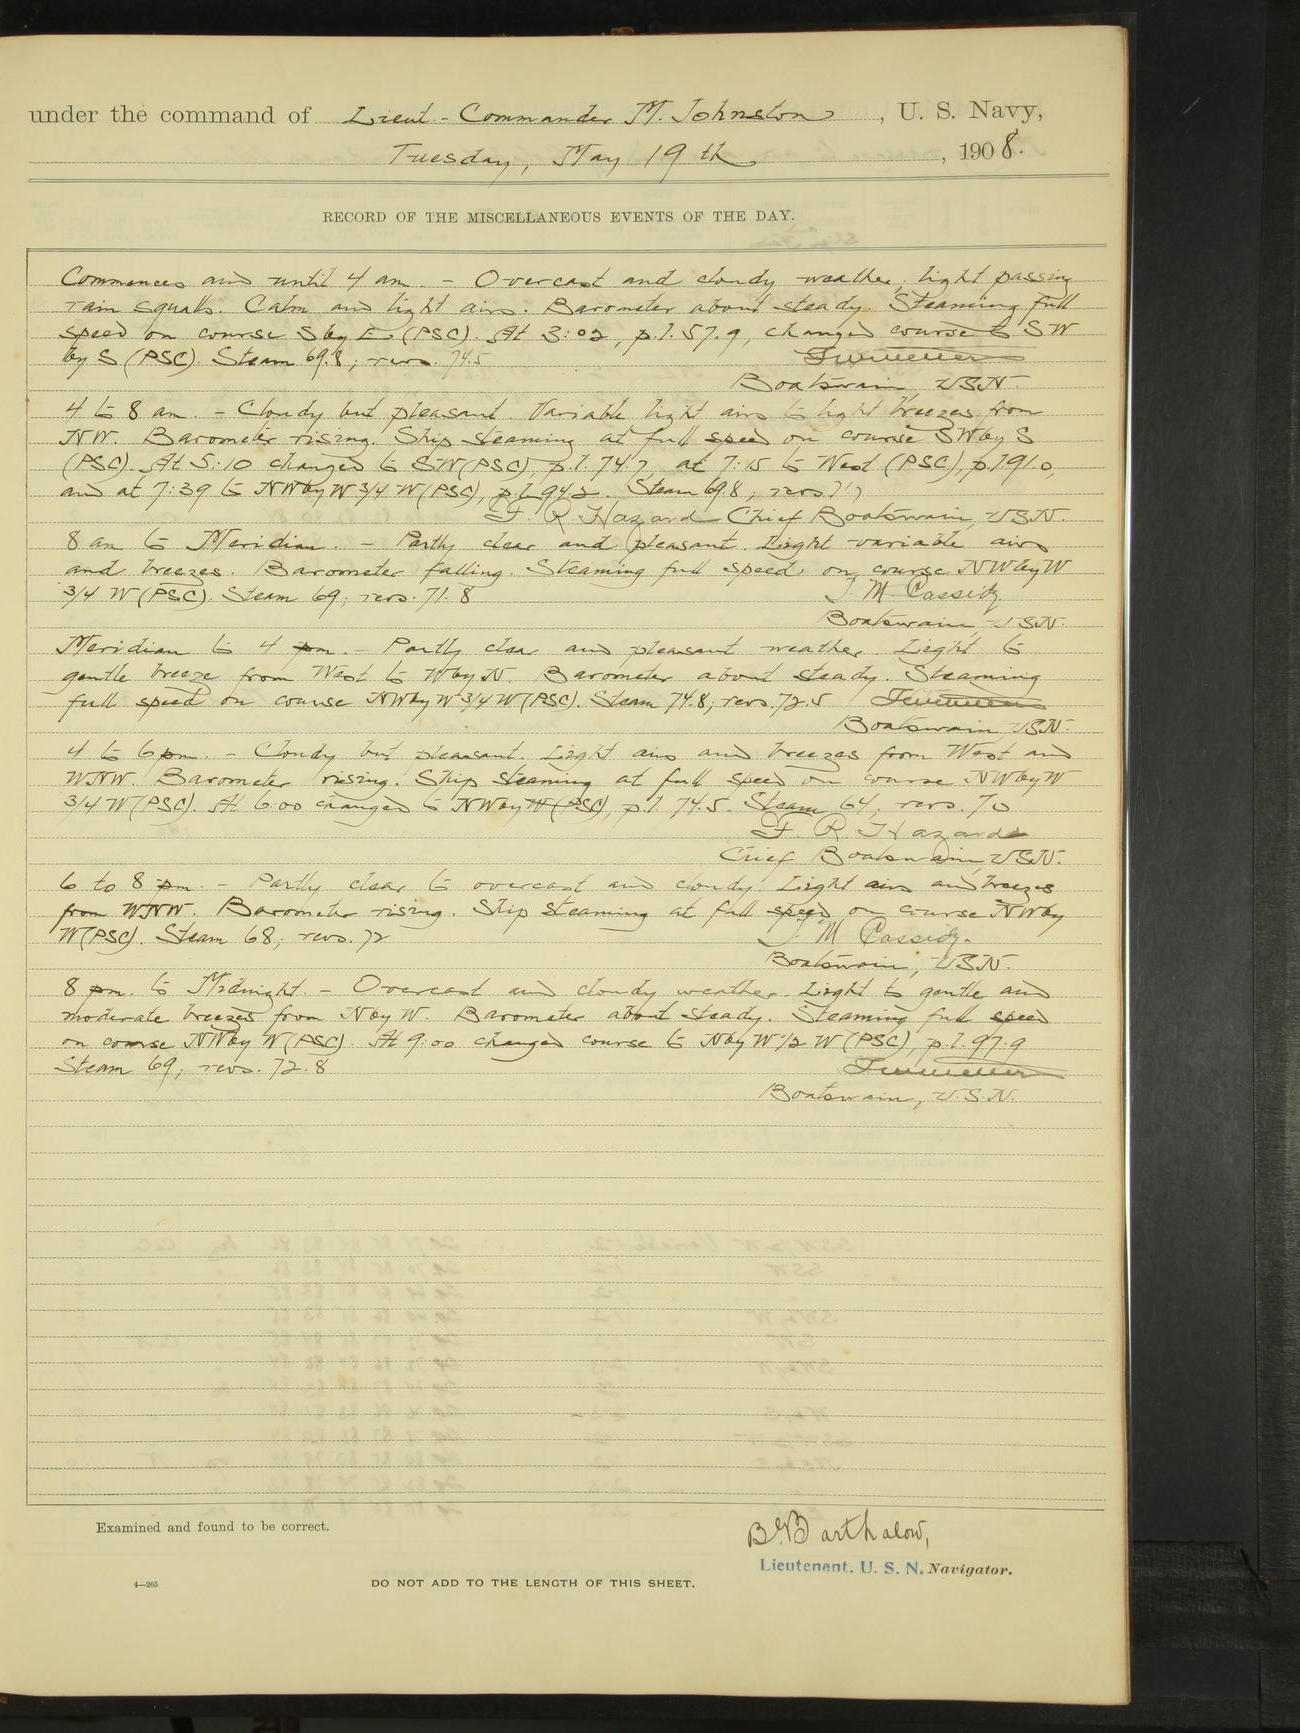 under the command of Lieut.-Commander M. Johnston, U. S. Navy,
Tuesday, May 19th, 1908.
RECORD OF THE MISCELLANEOUS EVENTS OF THE DAY.
Commences and until 4 am. - Overcast and cloudy weather, light passing
rain squalls. Calm and light airs. Barometer about steady. Steaming full
speed on course S by E (PSC). At 3:02, p.l. 57.9, changed course to SW
by S (PSC). Steam 69.8; revs. 74.5
Boatswain USN.
4 to 8 am. - Cloudy but pleasant. Variable light airs to light breezes from
NW. Barometer rising. Ship steaming at full speed on course SW by S
(PSC). At 5:10 changed to SW (PSC), p.l. 74.7, at 7:15 to West (PSC), p.l. 91.0,
and at 7:39 to NW by W 3/4 W (PSC), p.l. 94.2. Steam 69.8; revs.
F. R. Hazard Chief Boatswain, USN.
8 am to Meridian. - Partly clear and pleasant. Light variable airs
and breezes. Barometer falling. Steaming full speed on course NW by W
3/4 W (PSC). Steam 69; revs. 71.8 J. M. Cassidy
Boatswain USN.
Meridian to 4 pm. - Partly clear and pleasant weather. Light to
gentle breeze from West to W by N. Barometer about steady. Steaming
full speed on course NW by W 3/4 W (PSC). Steam 74.8; revs. 72.5
Boatswain, USN.
4 to 6 pm. - Cloudy but pleasant. Light airs and breezes from West and
WNW. Barometer rising. Ship steaming at full speed on course NW by W
3/4 W (PSC). At 6:00 changed to NW by W (PSC), p.l. 74.5. Steam 64; revs. 70
F. R. Hazard
Chief Boatswain, USN.
6 to 8 pm. - Partly clear to overcast and cloudy. Light airs and breezes
from WNW. Barometer rising. Ship steaming at full speed on course NW by
W (PSC). Steam 68; revs. 72 J. M Cassidy.
Boatswain, USN.
8 pm. to Midnight. - Overcast and cloudy weather. Light to gentle and
moderate breezes from N by W. Barometer about steady. Steaming full speed
on course NW by W (PSC). At 9:00 changed course to N by W 1/2 W (PSC), p.l. 97.9
Steam 69; revs. 72.8
Boatswain, U.S.N.
Examined and found to be correct.
B. B. Barthalow,
Lieutenant. U. S. N. Navigator.
4—265
DO NOT ADD TO THE LENGTH OF THIS SHEET.